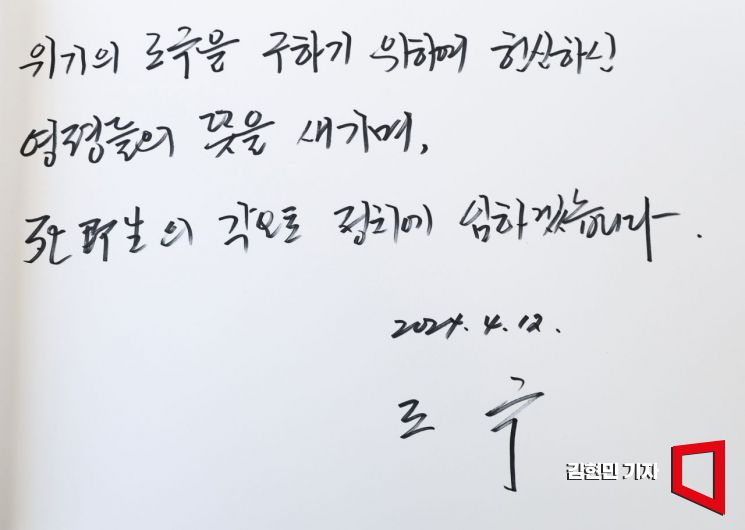 위기의 조국을 구하기 위하여 헌신하신
영령들의 뜻을 새기며,
각오로 정치에 임하겠습니다.
2024. 4. 12.
조 국
김현민 기자